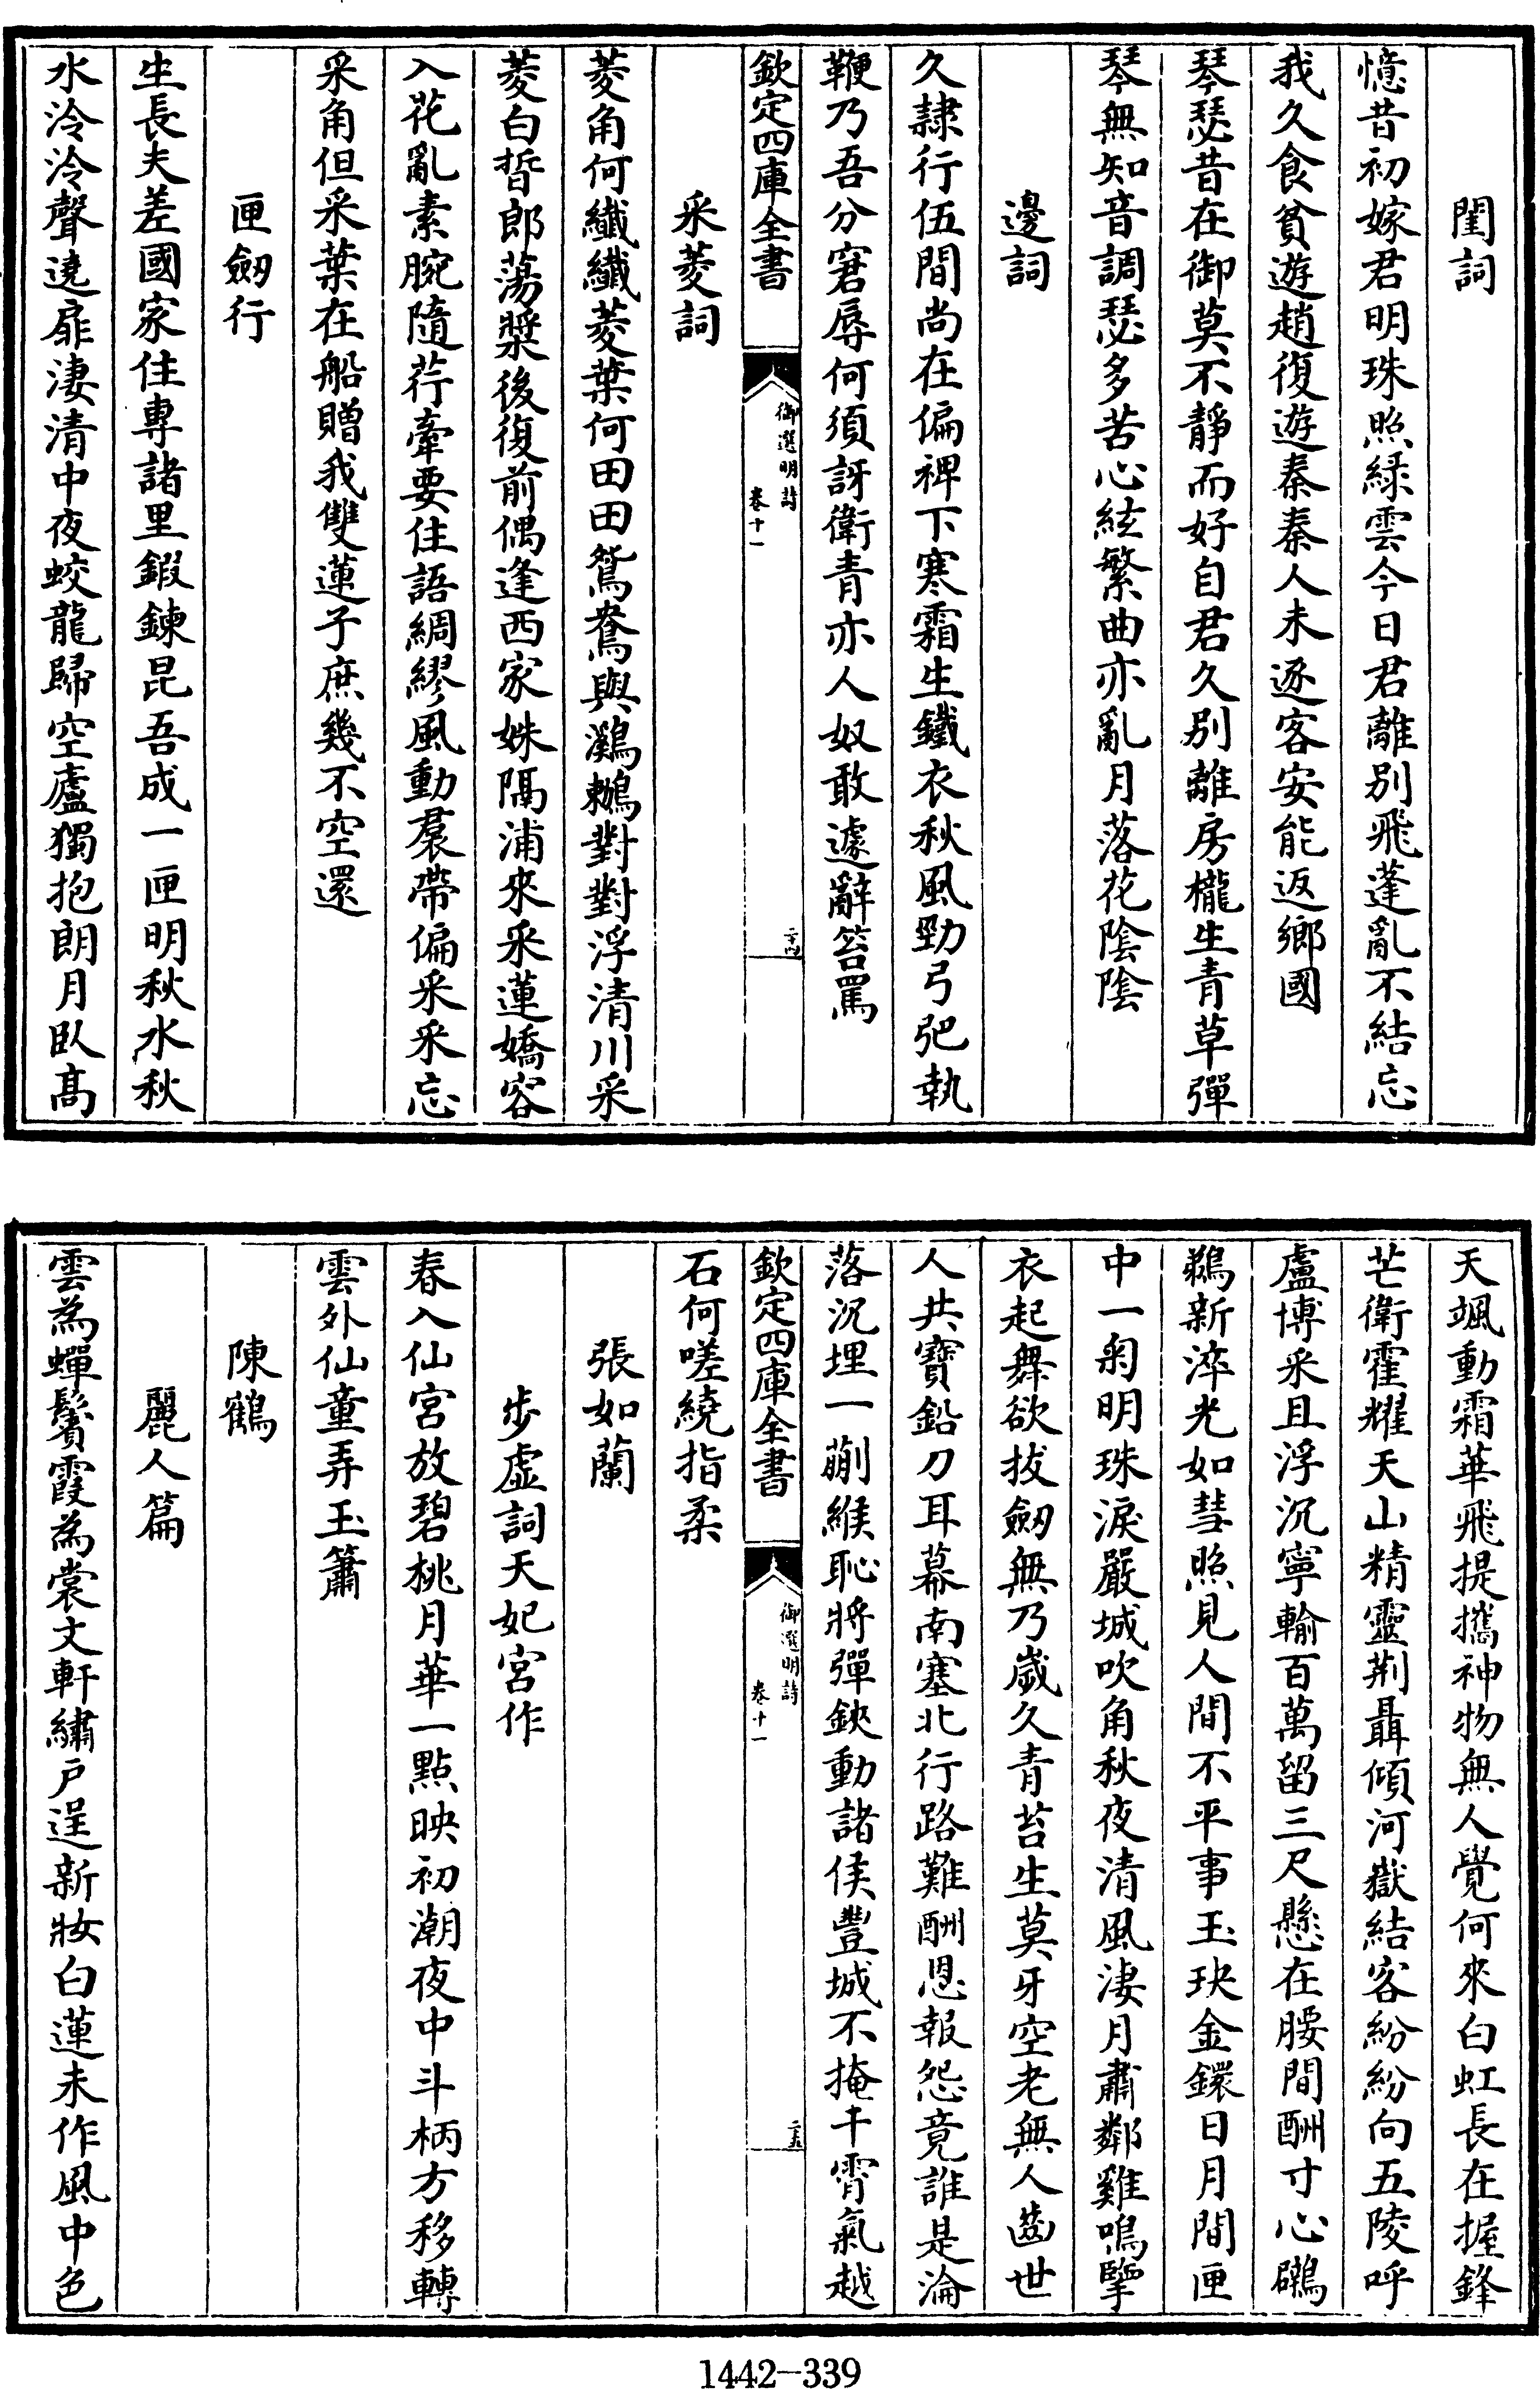 閨詞
憶昔初嫁君明珠照緑雲今日君離别飛蓬亂不結忘
我久食貧遊趙復遊秦秦人未逐客安能返鄉國
琴瑟昔在御莫不靜而好自君久别離房櫳生青草彈
琴無知音調瑟多苦心絃繁曲亦亂月落花陰陰
邊詞
久隷行伍間尚在偏裨下寒霜生鐵衣秋風勁弓弝執
鞭乃吾分窘辱何須訝衛青亦人奴敢遽辭笞罵
欽定四庫全書
御選明詩
卷十一
二十四
采菱詞
菱角何纖纖菱葉何田田鴛鴦與鸂鶒對對浮清川采
菱白晳郎蕩槳後復前偶逢西家姝隔浦來采蓮嬌容
入花亂素腕隨荇牽要住語綢繆風動裠帶偏采采忘
采角但采葉在船贈我雙蓮子庶幾不空還
匣劒行
生長夫差國家住專諸里鍜鍊昆吾成一匣明秋水秋
水泠泠聲遶扉淒清中夜蛟龍歸空廬獨抱朗月臥高
天颯動霜華飛提攜神物無人覺何來白虹長在握鋒
芒衛霍耀天山精靈荆聶傾河嶽結客紛紛向五陵呼
盧博采且浮沉寧輸百萬留三尺懸在腰間酬寸心鸊
鵜新淬光如彗照見人間不平事玉玦金鐶日月間匣
中一匊明珠淚嚴城吹角秋夜清風淒月肅鄰雞鳴擥
衣起舞欲拔劒無乃歲久青苔生莫牙空老無人齒世
人共寶鉛刀耳幕南塞北行路難酬恩報怨竟誰是淪
落沉埋一蒯緱恥將彈鋏動諸侯豐城不掩干霄氣越
欽定四庫全書
御選明詩
卷十一
二十五
石何嗟繞指柔
張如蘭
步虛詞天妃宮作
春入仙宮放碧桃月華一點映初潮夜中斗柄方移轉
雲外仙童弄玉簫
陳鶴
麗人篇
雲為蟬鬢霞為裳文軒繡戸逞新妝白蓮未作風中色
1442-339